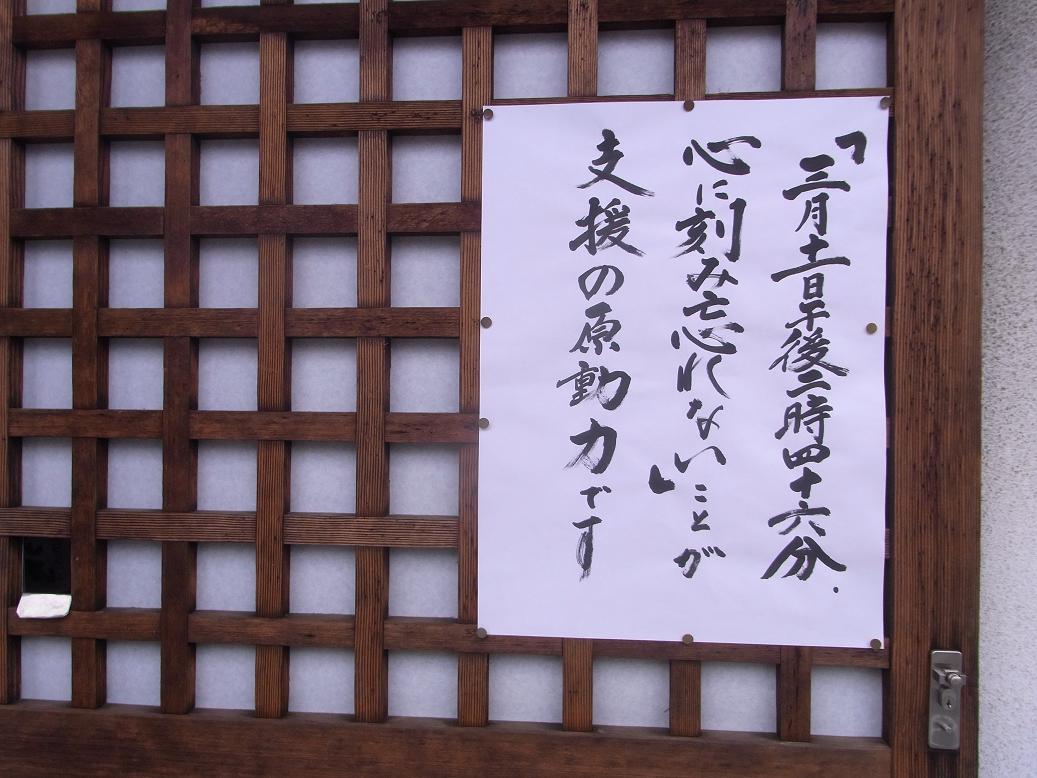 「三月十一日午後二時四十六分.
心に刻み忘れない」ことが
支援の原動力です